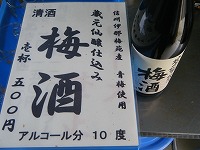 清酒
信州伊那梅苑産 青梅使用
蔵元仙醸仕込み
梅酒
壱杯 五〇〇円
アルコール分 10 度
梅酒